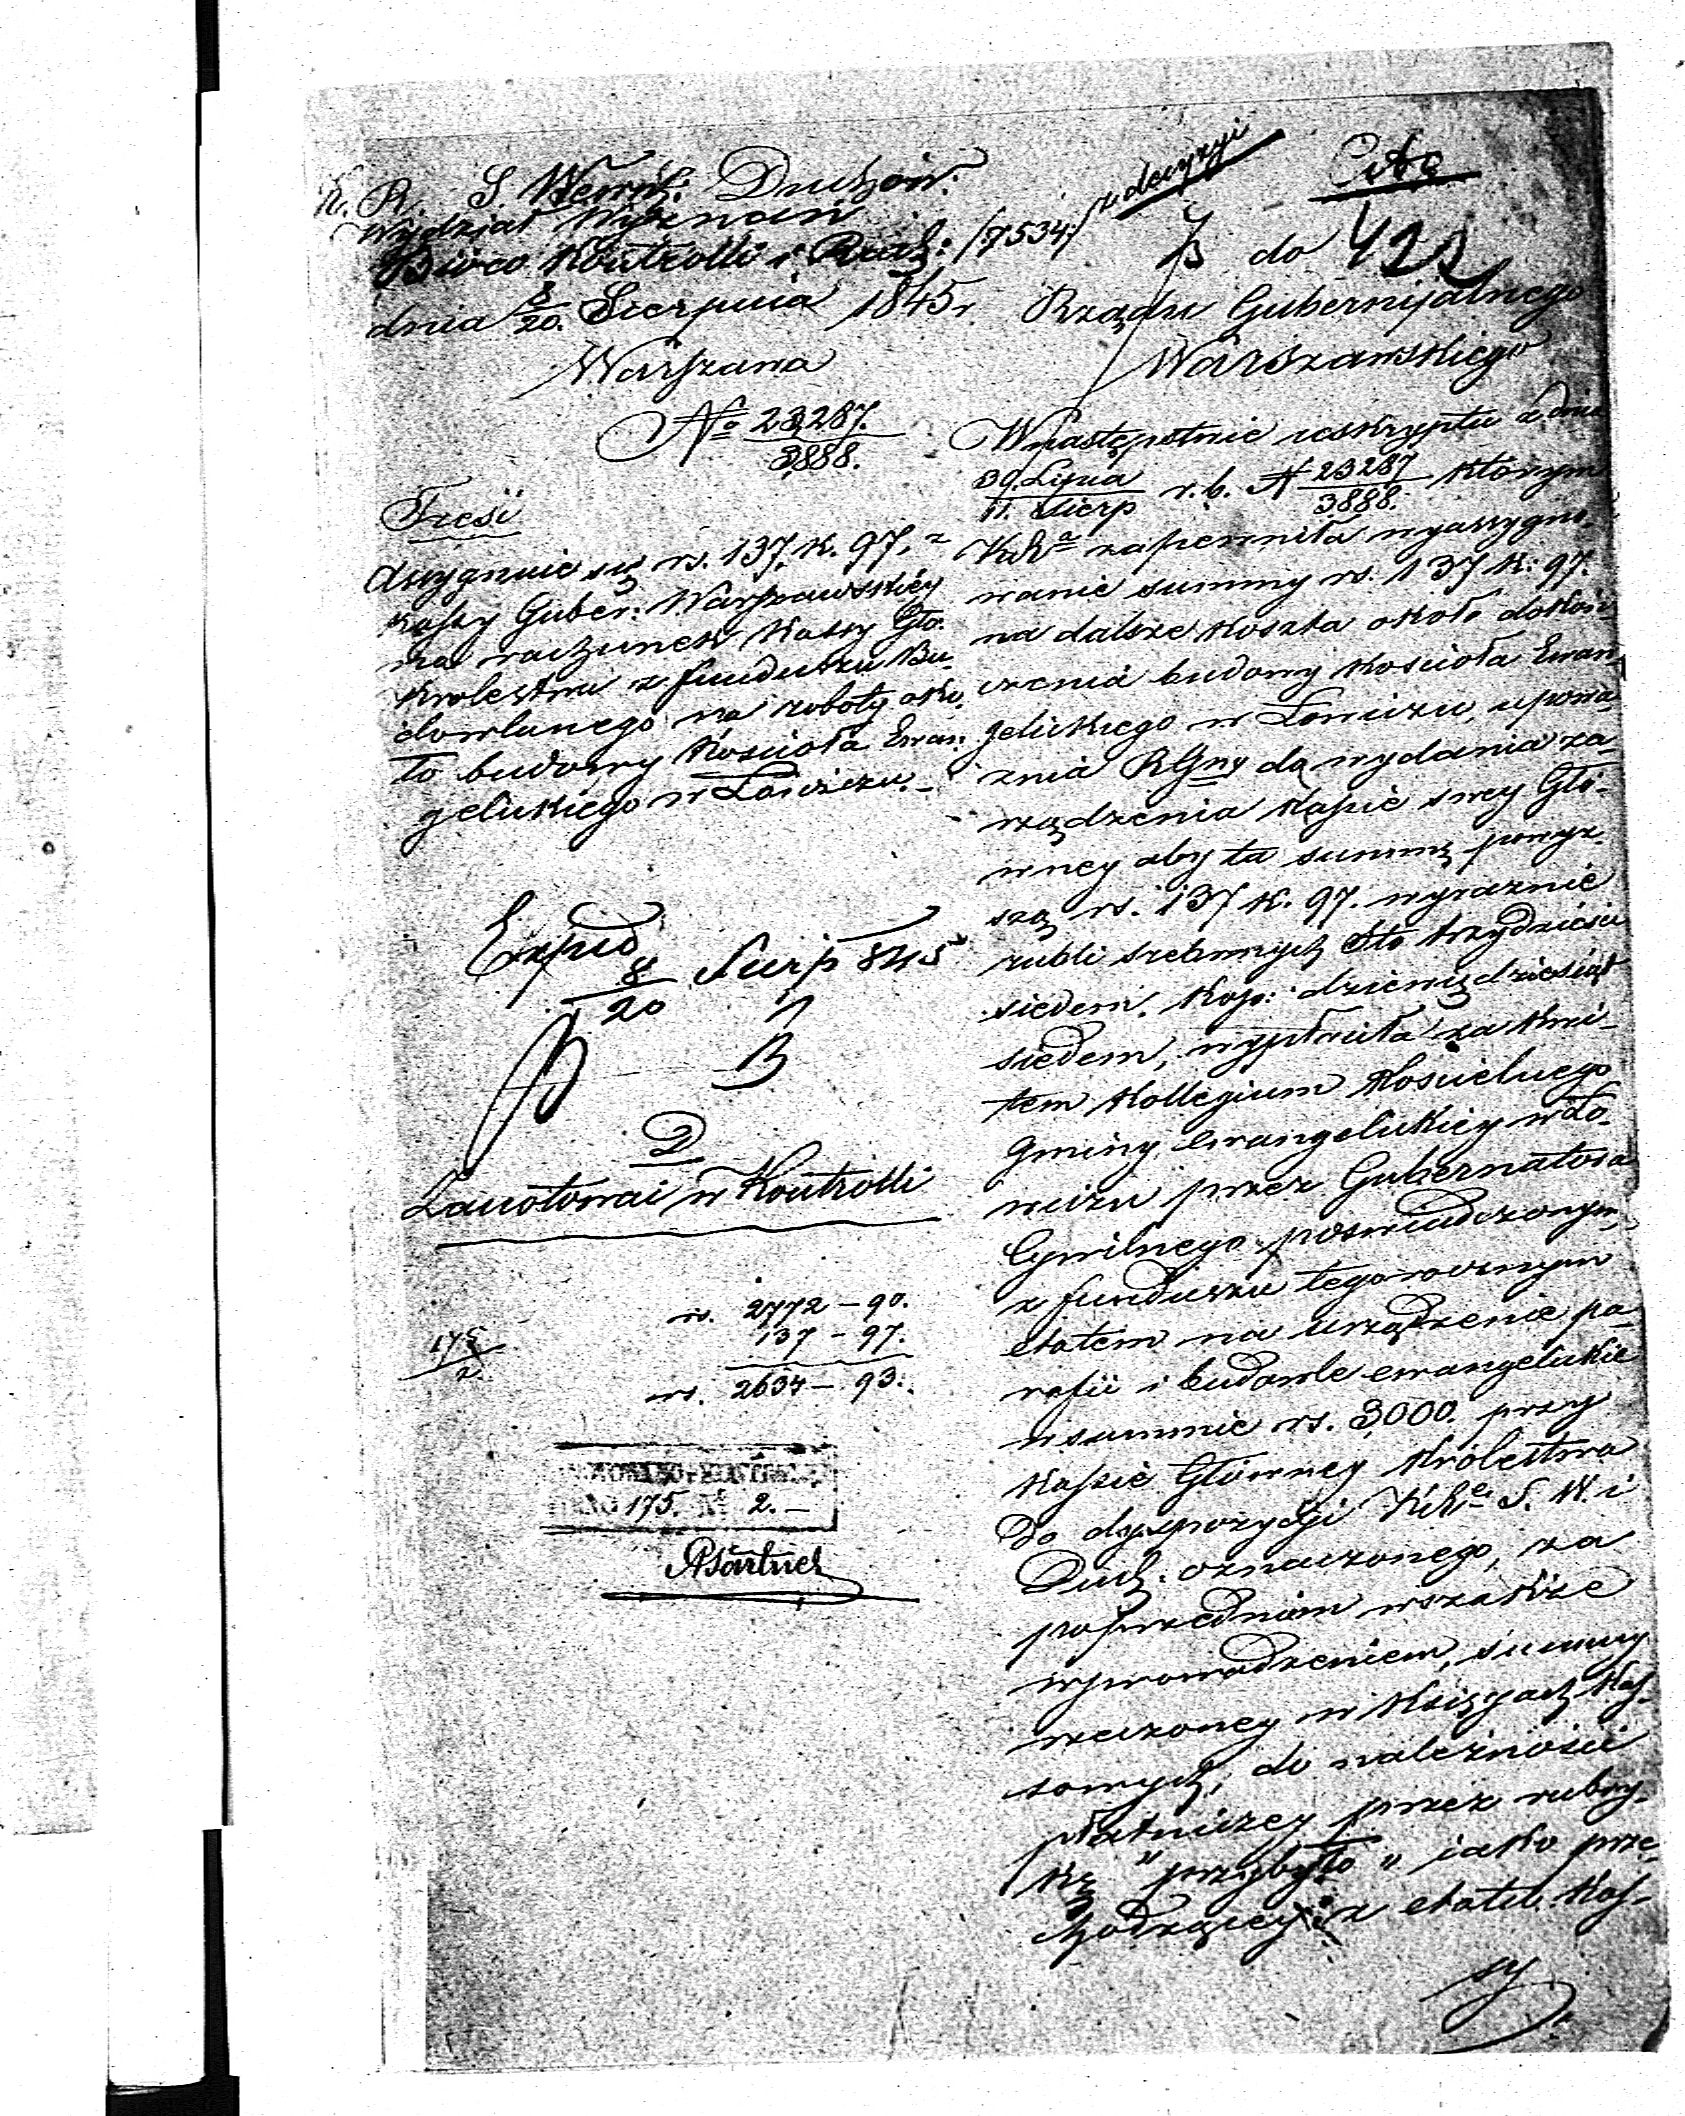 K. R. S. Wewn: Duchow:
Wydział Wyznań
Biuro Kontrolli i Rach: /7534/
dnia 8/20. Sierpnia 1845 r
Warszawa
No 23,287./3888.
Treść
Assygnuie się rs. 137. k. 97. z
Kassy Guber: Warszawskiéy
na rachunek Kassy Głó.
Królestwa z funduszu Bu-
dowlanego na roboty oko-
ło budowy Kościoła Ewan-
gelickiégo w Łowiczu.-
Exped 8/20 Sierp 845
B
D
Zanotować w Kontrolli
rs. 2772 - 90.
137 - 97.
rs. 2634 - 93.
175/2
175. N 2. -
z decyzyi
Cito
do 422
Rządu Gubernijalnego
Warszawskiego
W następstwie reskryptu z dnia
30. Lipca/11. Sierp r. b. N 23287/3888. którym
KRa zapewniła wyassygno-
wanie summy rs. 137 k: 97.
na dalsze koszta około dokoń-
czenia budowy Kościoła Ewan-
gelickiego w Łowiczu, upowa-
żnia RGny do wydania za-
rządzenia Kassie swey Głó-
wney aby ta summę powyż-
szą rs. 137 k. 97. wyraznie
rubli srebrnych Sto trzydzieści
siedem, kop: dziewięćdziesiąt
siedem, wypłaciła za kwi-
tem Kollegium Kościelnego
Gminy Ewangelickiey w Ło-
wiczu przez Gubernatora
Cywilnego poswiadczonym,
z funduszu tegorocznym
etatem na urządzenie pa-
rafii i budowle ewangelickie
w summie rs. 3,000. przy
Kassie Głównéy Królestwa
do dyspozycyi KRi S. W. i
Duch. oznaczonego, za
poprzedniém wszakże
wprowadzeniem, summy
rzeczoney w Księgach Kas-
sowych, do należności
płatniczey przez rubry-
kę "przybyło" iako prze-
chodzącey z etatu Kas-
sy